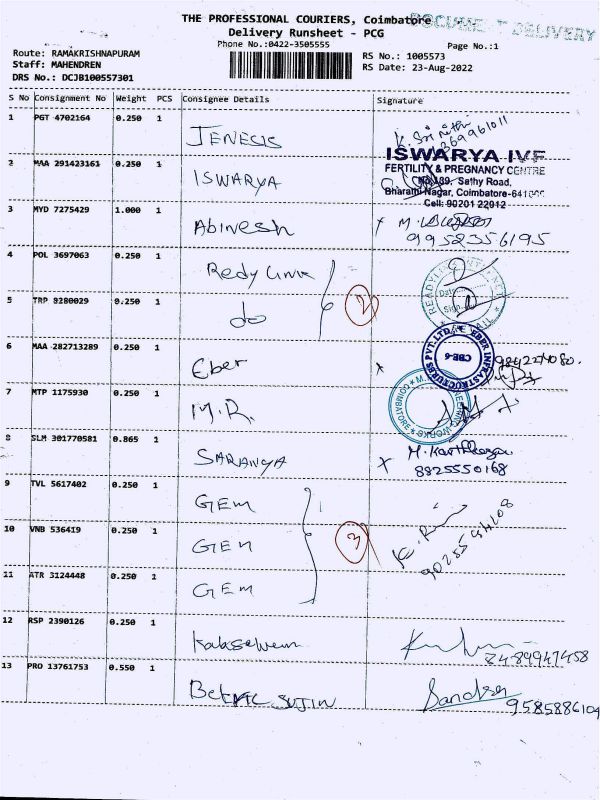 THE PROFESSIONAL COURIERS, Coimbatore
DOCUMENT DELIVERY
Delivery Runsheet - PCG
Phone No.:0422-3505555
Page No.:1
Route: RAMAKRISHNAPURAM
RS No.: 1005573
Staff: MAHENDREN
RS Date: 23-Aug-2022
DRS No.: DCJB100557301
S No Consignment No Weight PCS Consignee Details Signature
1 PGT 4702164 0.250 1 JENESIS
2 MAA 291423161 0.250 1 ISWARYA
ISWARYA IVF
FERTILITY & PREGNANCY CENTRE
No.189, Sathy Road,
Bharathi Nagar, Coimbatore-641
Cell: 90201 22012
3 MYD 7275429 1.000 1 Abinesh
9952356195
4 POL 3697063 0.250 1 Redy Link
5 TRP 8280029 0.250 1 do
2
6 MAA 282713289 0.250 1 Eber
EBER INFRASTRUCTURES PVT. LTD.
CBE-6
7 MTP 1175930 0.250 1 M.R.
COIMBATORE
8 SLM 301770581 0.865 1 SARANYA
8825550168
9 TVL 5617402 0.250 1 GEM
10 VNB 536419 0.250 1 GEM
3
11 ATR 3124448 0.250 1 GEM
12 RSP 2390126 0.250 1
8489947458
13 PRO 13761753 0.550 1 SUJIN
9585886104